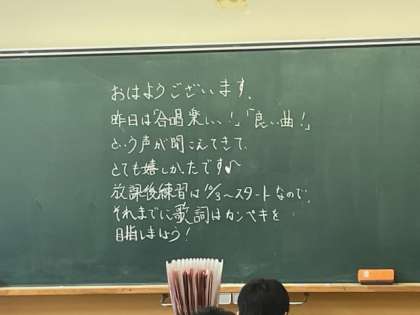 おはようございます。
昨日は「合唱楽しい!」「良い曲!」
という声が聞こえてきて、
とても嬉しかったです♪
放課後練習は10/3〜スタートなので、
それまでに歌詞はカンペキを
目指しましょう!